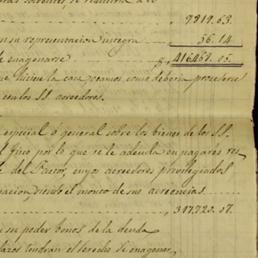 9919.63.
su representacion integra 56.14
de enagenarse $ 416467.05.
que hiciere la casa veamos como deberia procederse
con los SS. acreedores.
especial ó general sobre los bienes de los SS.
fisco por lo que se le adeuda en pagarés
del Fiscor, cuyos acreedores privilegiados
siendo el monto de sus acreencias
317,720.07.
su poder bonos de la deuda
plazos tendran el derecho de enagenar